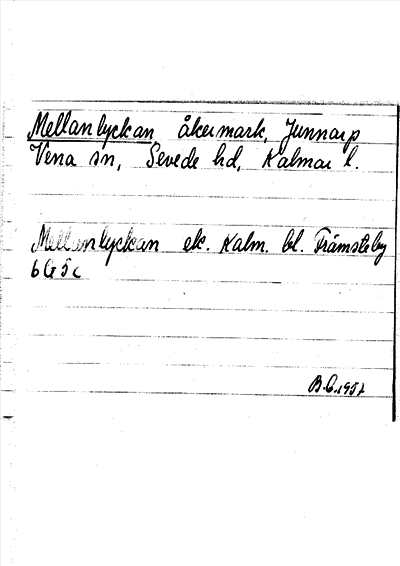 Mellanlyckan åkermark, Junnarp
Vena sn, Sevede hd, Kalmar l.
Mellanlyckan ek. Kalm. bl. Främsteby
6G5c
B.C. 1957